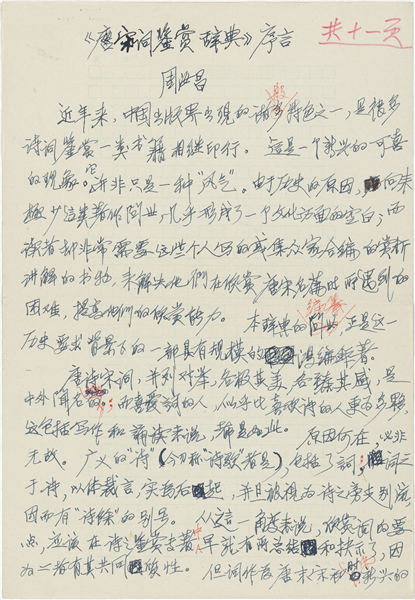 《唐宋词鉴赏辞典》序言
共十一页
周汝昌
近年来，中国出版界出现的诸多特色之一，是很多
诗词鉴赏一类书籍相继印行。这是一个新兴的可喜
的现象。它许非只是一种“风气”。由于历史的原因，向来
极少这类著作问世，几乎形成了一个文化方面的空白，而
读者却非常需要这些个人写的或集众家合编的赏析
讲解的书物，来解决他们在欣赏唐宋名篇时所遇到的
困难，提高他们的欣赏能力。本辞典的编纂正是这一
历史要求背景下的一部具有规模的鸿编钜著。
唐诗宋词，并列对举，各极其美，各臻其盛，是
中外闻名的；而喜爱词的人，似乎比喜欢诗的人更为多，
这包括写作和诵读来说，都是如此。原因何在，必非
无故。广义的“诗”（今初称“诗歌”者是），包括了词；词之
于诗，以体裁言，实为后起，并且被视为诗之旁支别流，
因而有“诗余”的别号。从这一角度来说，欣赏词的要
点，应该在诗之鉴赏中早就有所总结和抉示了，因
为二者有其共同质性。但词作为唐末宋初时新兴的